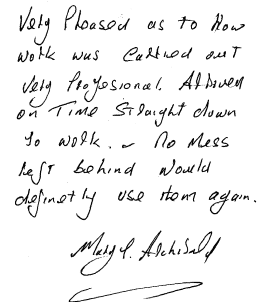 Very Pleased as to How
work was carried out
Very Proffesional. Arrived
on Time straight down
to work. - No Mess
left behind would
definetly use them again.
Mary P. Archibald